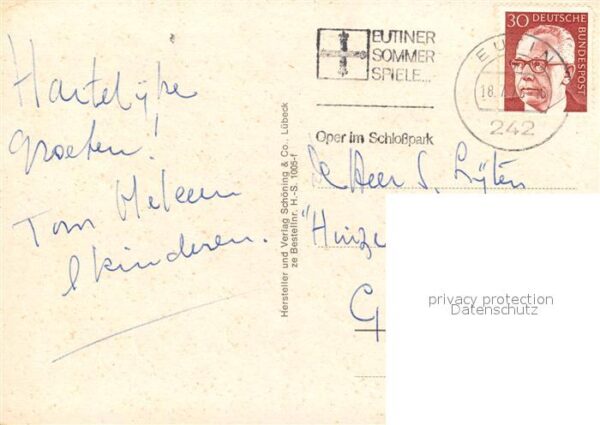 Hartelijke
groeten!
Tom Heleen
& kinderen.
Hersteller und Verlag Schöning & Co., Lübeck
ze Bestellnr. H.-S. 1005-f
EUTINER
SOMMER
SPIELE...
Oper im Schloßpark
EUTIN
18.7.
242
30 DEUTSCHE
BUNDESPOST
de Heer S. Lijten
"Huize
G
privacy protection
Datenschutz